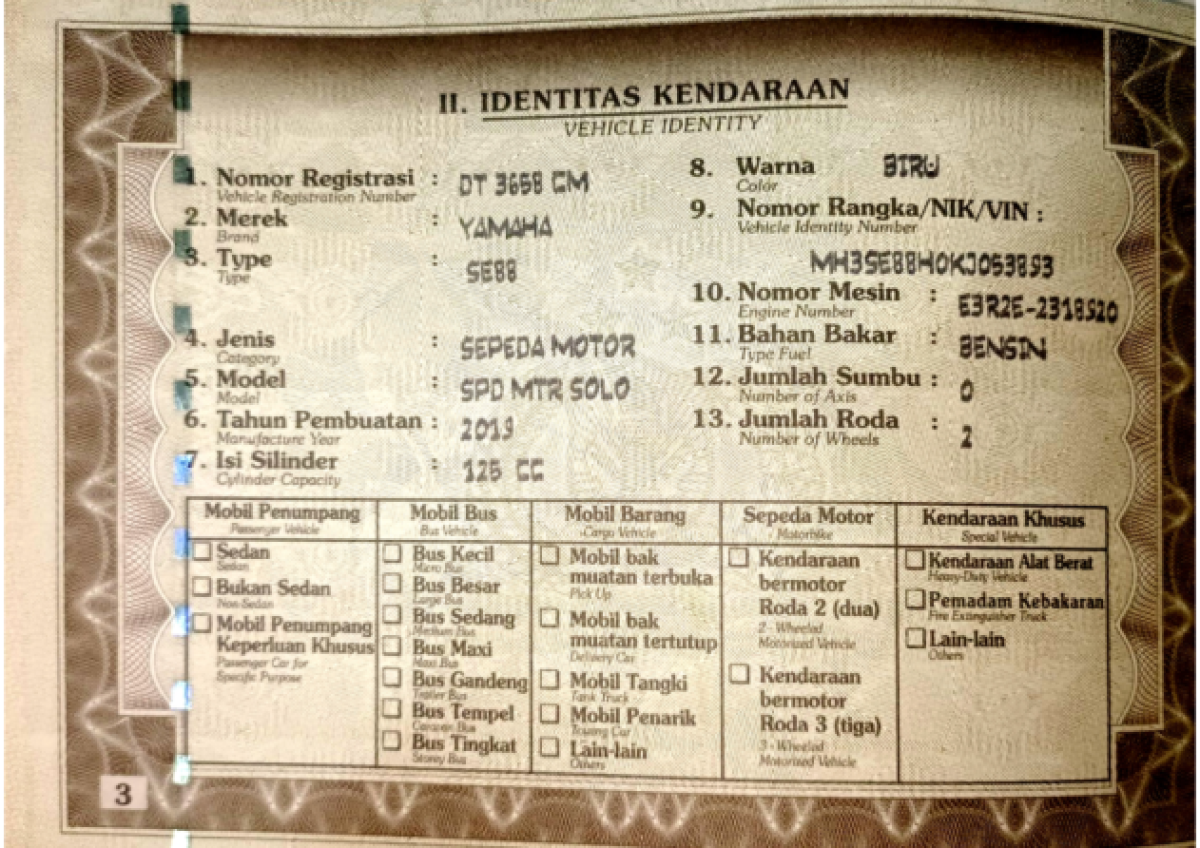 II. IDENTITAS KENDARAAN
VEHICLE IDENTITY
1. Nomor Registrasi : DT 3658 CM
Vehicle Registration Number
2. Merek : YAMAHA
Brand
3. Type : SE88
Type
4. Jenis : SEPEDA MOTOR
Category
5. Model : SPD MTR SOLO
Model
6. Tahun Pembuatan : 2019
Manufacture Year
7. Isi Silinder : 125 CC
Cylinder Capacity
8. Warna BIRU
Color
9. Nomor Rangka/NIK/VIN :
Vehicle Identity Number
MH3SE88H0KJ053893
10. Nomor Mesin : E3R2E-2318920
Engine Number
11. Bahan Bakar : BENSIN
Type Fuel
12. Jumlah Sumbu : 0
Number of Axis
13. Jumlah Roda : 2
Number of Wheels
Mobil Penumpang
Passenger Vehicle
Sedan
Sedan
Bukan Sedan
Non-Sedan
Mobil Penumpang
Keperluan Khusus
Passenger Car for
Specific Purpose
Mobil Bus
Bus Vehicle
Bus Kecil
Micro Bus
Bus Besar
Large Bus
Bus Sedang
Medium Bus
Bus Maxi
Maxi Bus
Bus Gandeng
Trailer Bus
Bus Tempel
Caravan Bus
Bus Tingkat
Storey Bus
Mobil Barang
Cargo Vehicle
Mobil bak
muatan terbuka
Pick Up
Mobil bak
muatan tertutup
Delivery Car
Mobil Tangki
Tank Truck
Mobil Penarik
Towing Car
Lain-lain
Others
Sepeda Motor
Motorbike
Kendaraan
bermotor
Roda 2 (dua)
2 - Wheeled
Motorised Vehicle
Kendaraan
bermotor
Roda 3 (tiga)
3 - Wheeled
Motorised Vehicle
Kendaraan Khusus
Special Vehicle
Kendaraan Alat Berat
Heavy-Duty Vehicle
Pemadam Kebakaran
Fire Extinguisher Truck
Lain-lain
Others
3